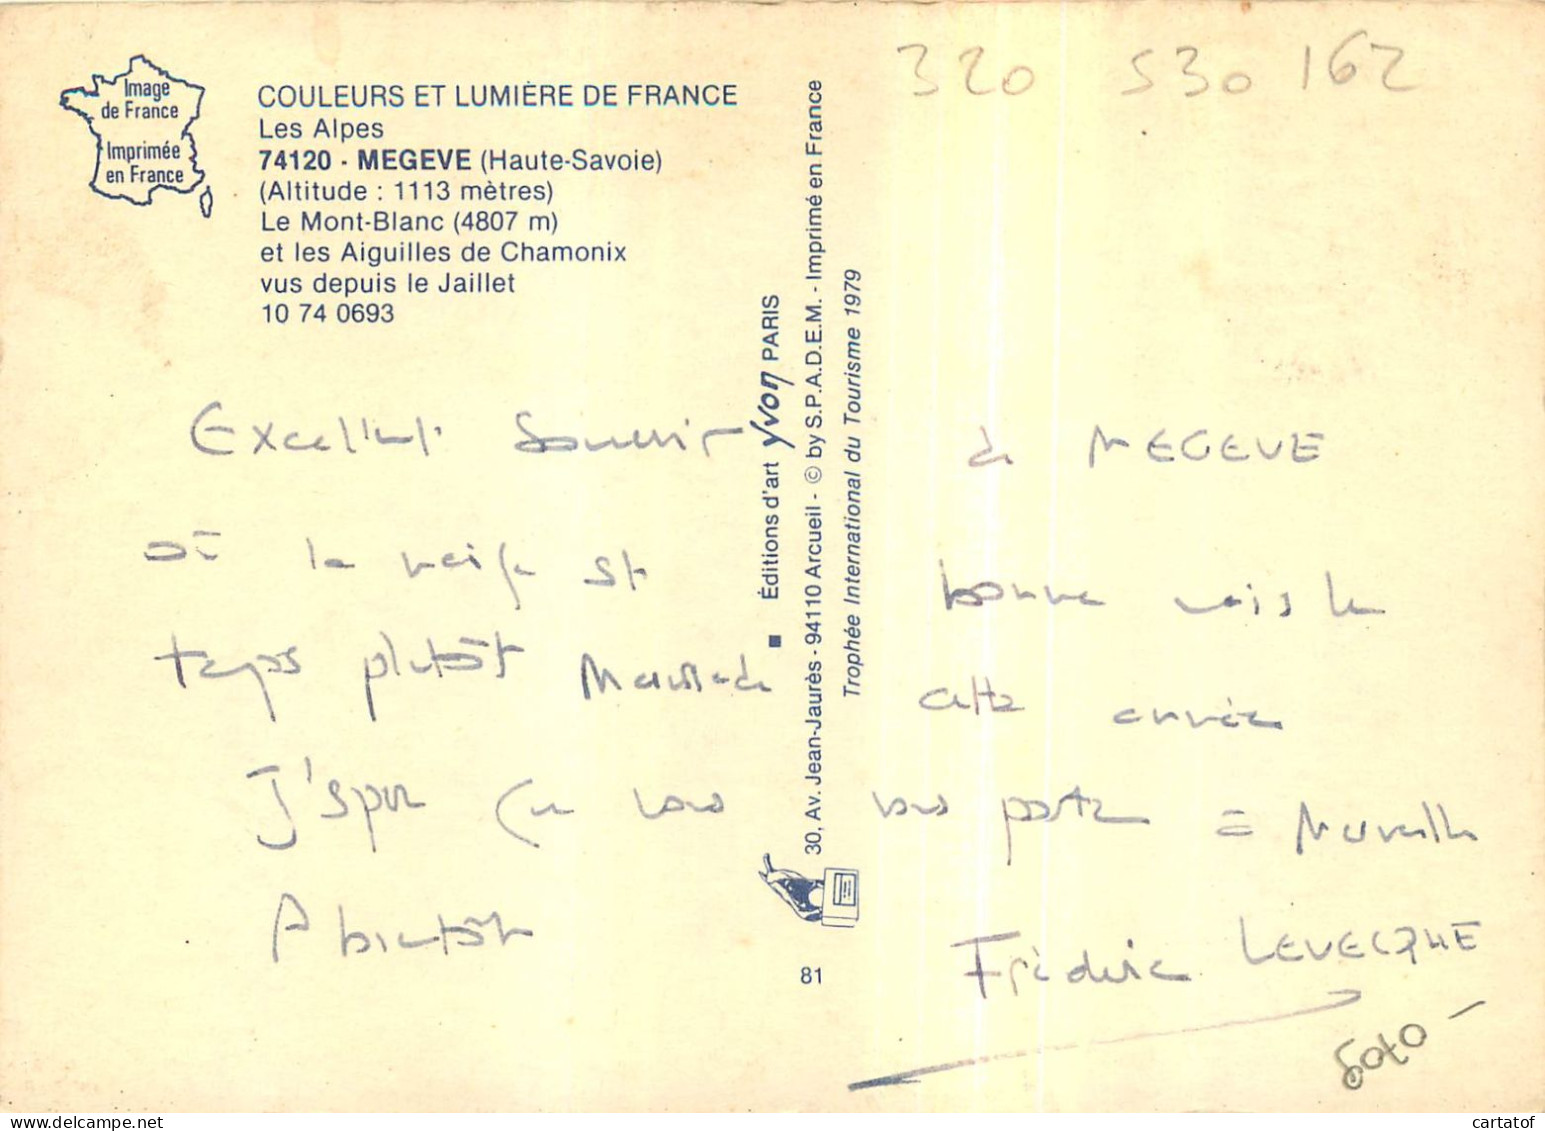 320 530 162
Image
de France
Imprimée
en France
COULEURS ET LUMIÈRE DE FRANCE
Les Alpes
74120 - MEGEVE (Haute-Savoie)
(Altitude : 1113 mètres)
Le Mont-Blanc (4807 m)
et les Aiguilles de Chamonix
vus depuis le Jaillet
10 74 0693
■ Éditions d'art yvon PARIS
30, Av. Jean-Jaurès - 94110 Arcueil - © by S.P.A.D.E.M. - Imprimé en France
Trophée International du Tourisme 1979
81
Excellent Souvenir de MEGEVE
où la neige est bonne mais le
temps plutôt cette année
J'espere que vous vous portez à Merveille
A bientôt
Frédéric LEVECQUE
cartatof